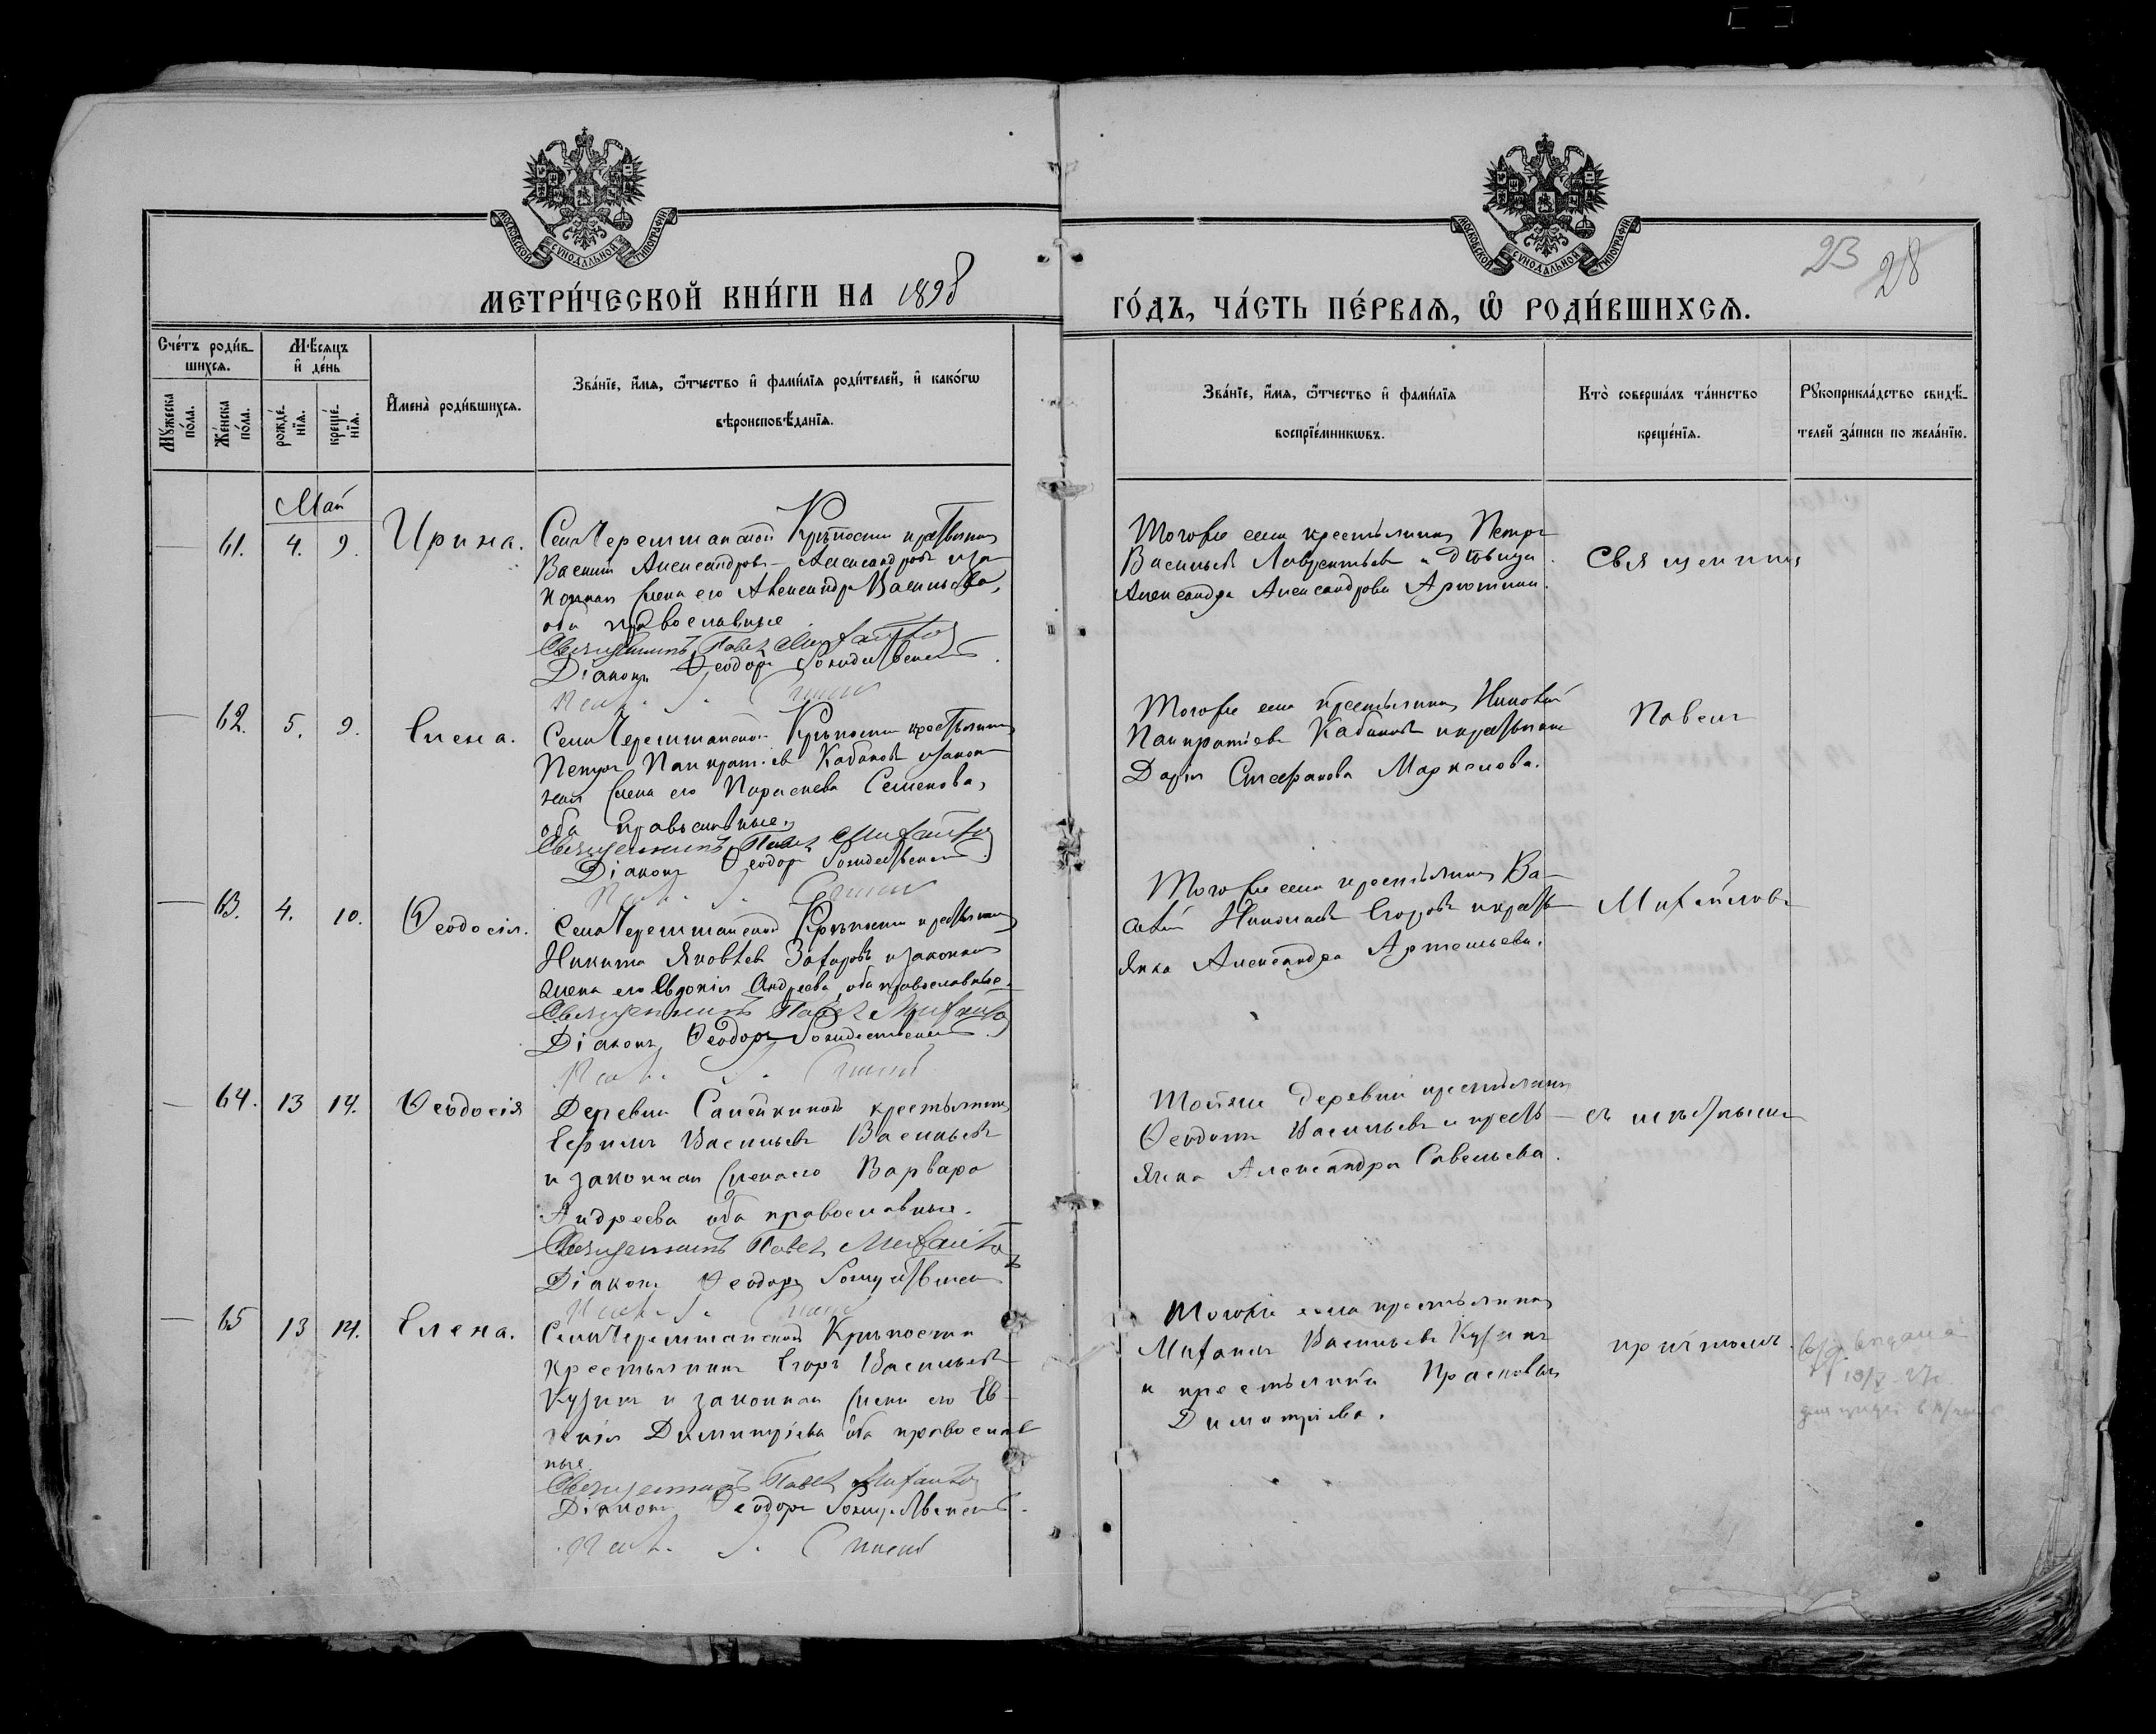 МОСКОВСКОЙ СУНОДАЛЬНОЙ ТИПОГРАФІИ
МОСКОВСКОЙ СУНОДАЛЬНОЙ ТИПОГРАФІИ
23 28
МЕТРИ́ЧЕСКОЙ КНИ́ГИ НА 1898
ГО́ДЪ, ЧА́СТЬ ПЕ́РВАѦ, Ѽ РОДИ́ВШИХСѦ.
Сче́тъ роди́в-
шихсѧ.
Мꙋжеска по́ла.
Же́нска по́ла.
Мѣ́сѧцъ
и҆ де́нь
рожде́-
нїѧ.
креще́-
нїѧ.
И҆мена̀ роди́вшихсѧ.
Зва́нїе, и҆́мѧ, ѻ҆́тчество и҆ фами́лїѧ роди́телей, и҆ како́гѡ
вѣроисповѣ́данїѧ.
Зва́нїе, и҆́мѧ, ѻ҆́тчество и҆ фами́лїѧ
воспрїе́мникѡвъ.
Кто̀ соверша́лъ та́инство
креще́нїѧ.
Рꙋкоприкла́дство свидѣ́-
телей за́писи по жела́нїю.
Май
— 61. 4. 9. Ирина.
Села Черемшанской Крѣпости крестьянинъ
Василій Александровъ Александровъ и за
конная жена его Александра Васильева,
оба православные
Священникъ Павелъ Михайловъ
Діаконъ Ѳеодоръ Рождественскій
Тогоже села крестьянинъ Петръ
Васильевъ Лаврентьевъ и дѣвица
Александра Александрова
Священникъ
— 62. 5. 9. Елена.
Села Черемшанской Крѣпости крестьянинъ
Петръ Панкратіевъ Кабановъ и закон
ная жена его Параскева Семенова,
оба Православные,
Священникъ Павелъ Михайловъ
Діаконъ Ѳеодоръ Рождественскій
Тогоже села крестьянинъ
Панкратіевъ Кабановъ и крестьянка
Дарія Стефанова Маркелова.
Павелъ
— 63. 4. 10. Ѳеодосія.
Села Черемшанской Крѣпости крестьянинъ
Никита Яковлевъ Захаровъ и законная
жена его Евдокія Андреева, оба православные.
Священникъ Павелъ Михайловъ
Діаконъ Ѳеодоръ Рождественскій
Тогоже села крестьянинъ Ва-
силій Николаевъ Егоровъ и кресть-
янка Александра Артемьева.
Михайловъ
— 64. 13 14. Ѳеодосія
Деревни крестьянинъ
Ефимъ Васильевъ Васильевъ
и законная жена его Варвара
Андреева оба православные.
Священникъ Павелъ Михайловъ
Діаконъ Ѳеодоръ Рождественскій
Тойже деревни крестьянинъ
Ѳеодотъ Васильевъ и кресть-
янка Александра Савельева.
съ
— 65 13 14. Елена.
Села Черемшанской Крѣпости
Крестьянинъ Егоръ Васильевъ
Кузинъ и законная жена его Ев-
генія Димитріева оба православ
ные.
Священникъ Павелъ Михайловъ
Діаконъ Ѳеодоръ Рождественскій
Тогоже села крестьянинъ
Михаилъ Васильевъ Кузинъ
и крестьянка Прасковья
Димитріева.
причтомъ.